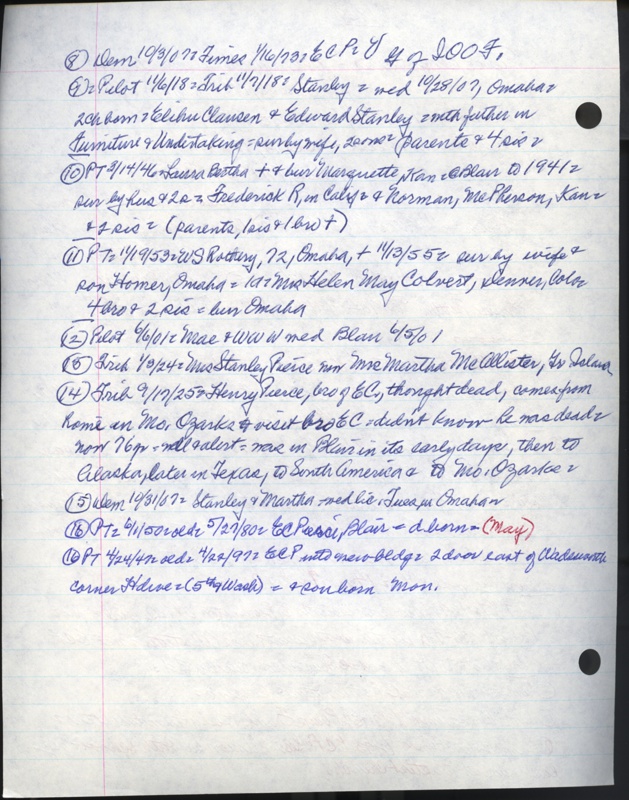 ⑧ Dem 10/3/07 = Times 1/16/73 = EC P = of IOOF.
⑨ = Pilot 11/6/18 = Trib 11/7/18 = Stanley = wed 10/28/07, Omaha =
2 ch born = Elihu Clausen & Edward Stanley = with father in
Furniture & Undertaking = sur by wife, 2 sons = (parents & 4 sis =
⑩ PT 3/14/46 = Laura Bertha + & bur Marquette, Kan = Blair to 1941 =
sur by hus & 2s = Frederick R, in Calif = & Norman, McPherson, Kan =
& 2 sis = (parents, 1 sis & 1 bro +)
⑪ PT = 11/19/53 = WS Rothery, 72, Omaha, + 11/13/55 = sur by wife &
son Homer, Omaha = 1d = Mrs Helen May Colvert, Denver, Colo
4 bro & 2 sis = bur Omaha
⑫ Pilot 6/6/01 = Mae & WW W med Blair 6/5/01
⑬ Trib 1/3/24 = Mrs Stanley Pierce now Mrs Martha McAllister, Gr Island
⑭ Trib 9/17/25 = Henry Pierce, bro of EC, thought dead, comes from
Home in Mo. Ozarks to visit bro EC = didn't know he was dead =
now 76 yr = well & alert = was in Blair in its early days, then to
Alaska, later in Texas, to South America & to Mo. Ozarks =
⑮ Dem 10/31/07 = Stanley & Martha = wed lic = Omaha
⑯ PT = 6/1/50 = oed = 5/27/80 = EC Pierce, Blair = d born = (May)
PT 4/24/47 = oed = 4/22/97 = EC P into new bldg = 2 door east of Wadsworth
corner Hdwe = (5th & Wash) = & son born Mon.